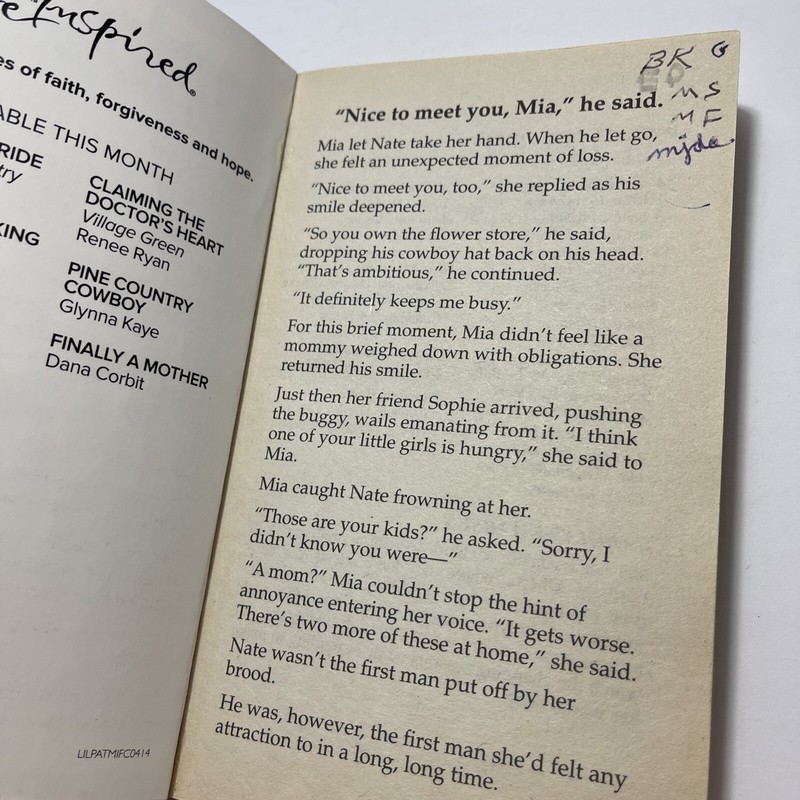 Inspired
es of faith, forgiveness and hope.
ABLE THIS MONTH
RIDE
try
KING
CLAIMING THE
DOCTOR'S HEART
Village Green
Renee Ryan
PINE COUNTRY
COWBOY
Glynna Kaye
FINALLY A MOTHER
Dana Corbit
LILPATMIFC0414
BK G
MS
MF
mjda
"Nice to meet you, Mia," he said.
Mia let Nate take her hand. When he let go,
she felt an unexpected moment of loss.
"Nice to meet you, too," she replied as his
smile deepened.
"So you own the flower store," he said,
dropping his cowboy hat back on his head.
"That's ambitious," he continued.
"It definitely keeps me busy."
For this brief moment, Mia didn't feel like a
mommy weighed down with obligations. She
returned his smile.
Just then her friend Sophie arrived, pushing
the buggy, wails emanating from it. "I think
one of your little girls is hungry," she said to
Mia.
Mia caught Nate frowning at her.
"Those are your kids?" he asked. "Sorry, I
didn't know you were—"
"A mom?" Mia couldn't stop the hint of
annoyance entering her voice. "It gets worse.
There's two more of these at home," she said.
Nate wasn't the first man put off by her
brood.
He was, however, the first man she'd felt any
attraction to in a long, long time.